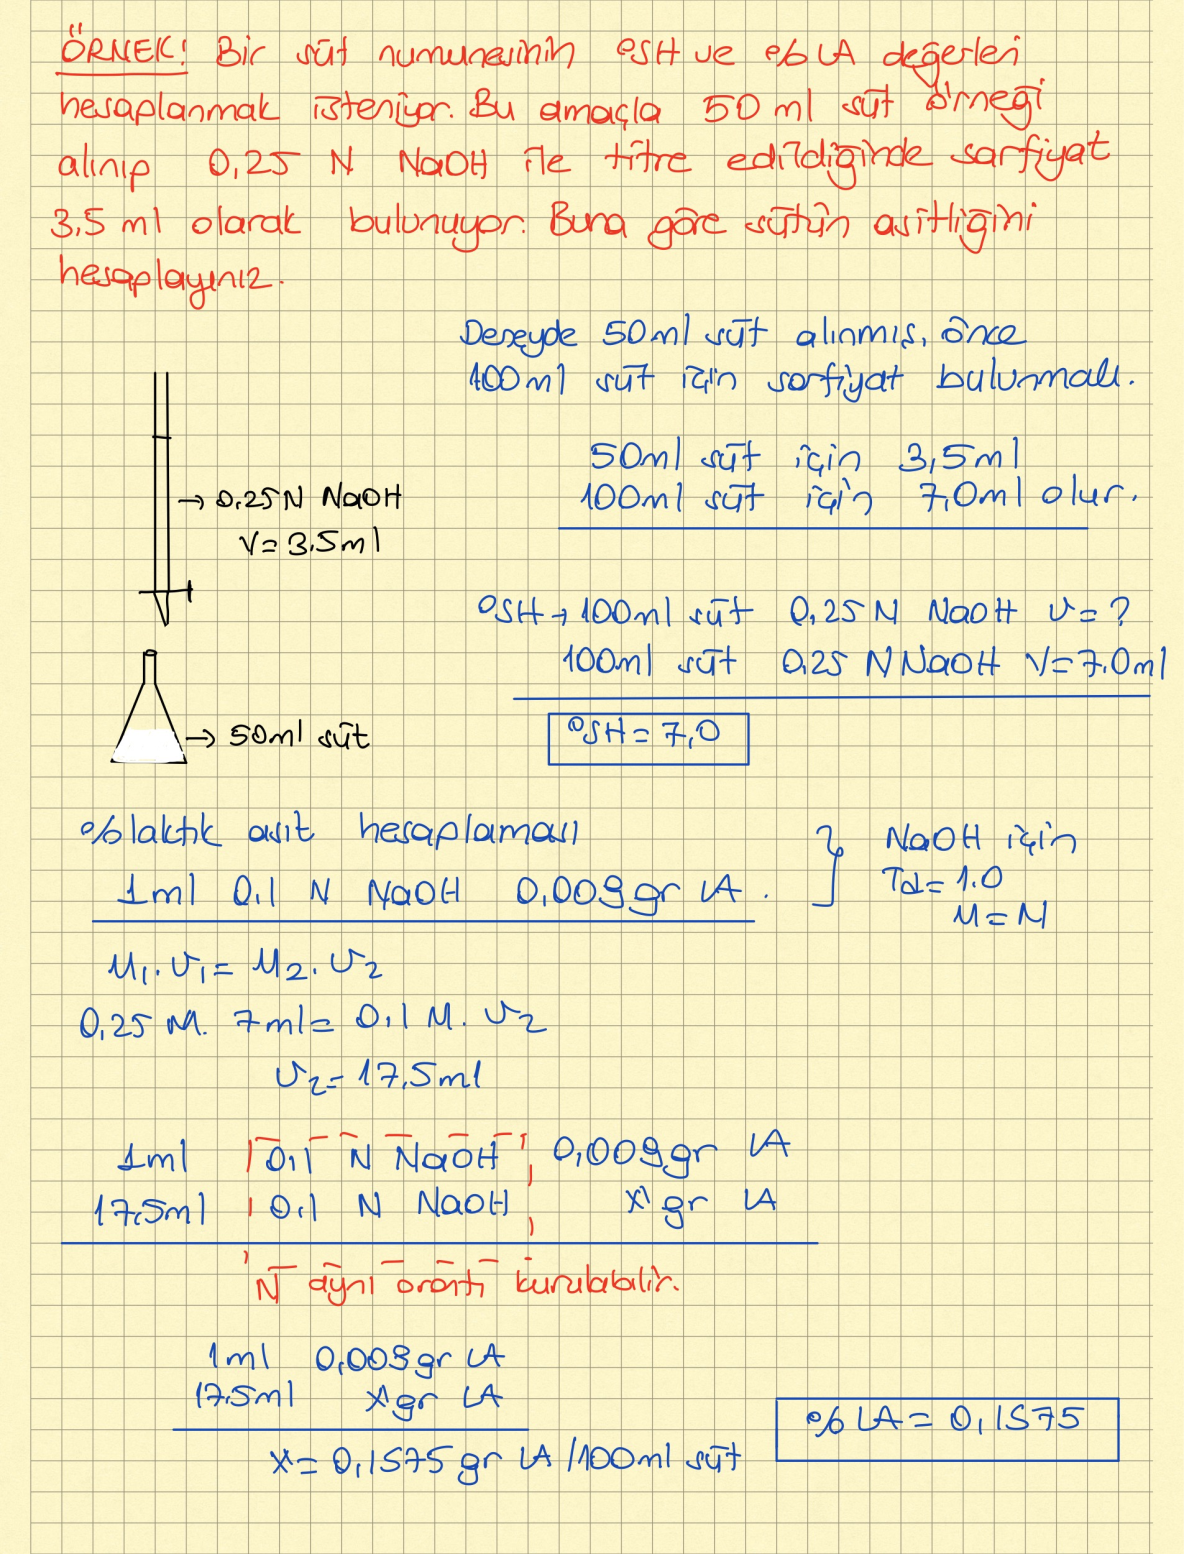 ÖRNEK! Bir süt numunesinin °SH ve % LA değerleri
hesaplanmak isteniyor. Bu amaçla 50 ml süt örneği
alınıp 0,25 N NaOH ile titre edildiğinde sarfiyat
3,5 ml olarak bulunuyor. Buna göre sütün asitliğini
hesaplayınız.
Deneyde 50ml süt alınmış, önce
100ml süt için sarfiyat bulunmalı.
50ml süt için 3,5ml
100ml süt için 7,0ml olur.
→ 0,25N NaOH
V= 3,5ml
°SH → 100ml süt 0,25 N NaOH V=?
100ml süt 0,25 N NaOH V=7,0ml
→ 50ml süt
°SH = 7,0
% laktik asit hesaplaması
1ml 0,1 N NaOH 0,009gr LA.
NaOH için
Td= 1.0
M=N
M1.V1= M2.V2
0,25 M. 7ml= 0,1 M. V2
V2= 17,5ml
1ml 0,1 N NaOH 0,009gr LA
17,5ml 0,1 N NaOH x gr LA
N aynı orantı kurulabilir.
1ml 0,009gr LA
17,5ml x gr LA
x= 0,1575 gr LA /100ml süt
% LA = 0,1575